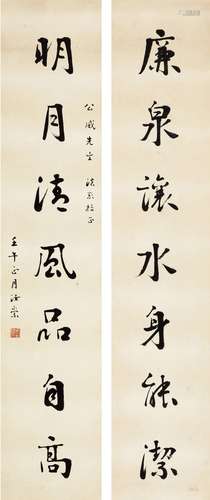 廉泉讓水身能潔
公威先生 法家指正
明月清風品自高
壬午正月